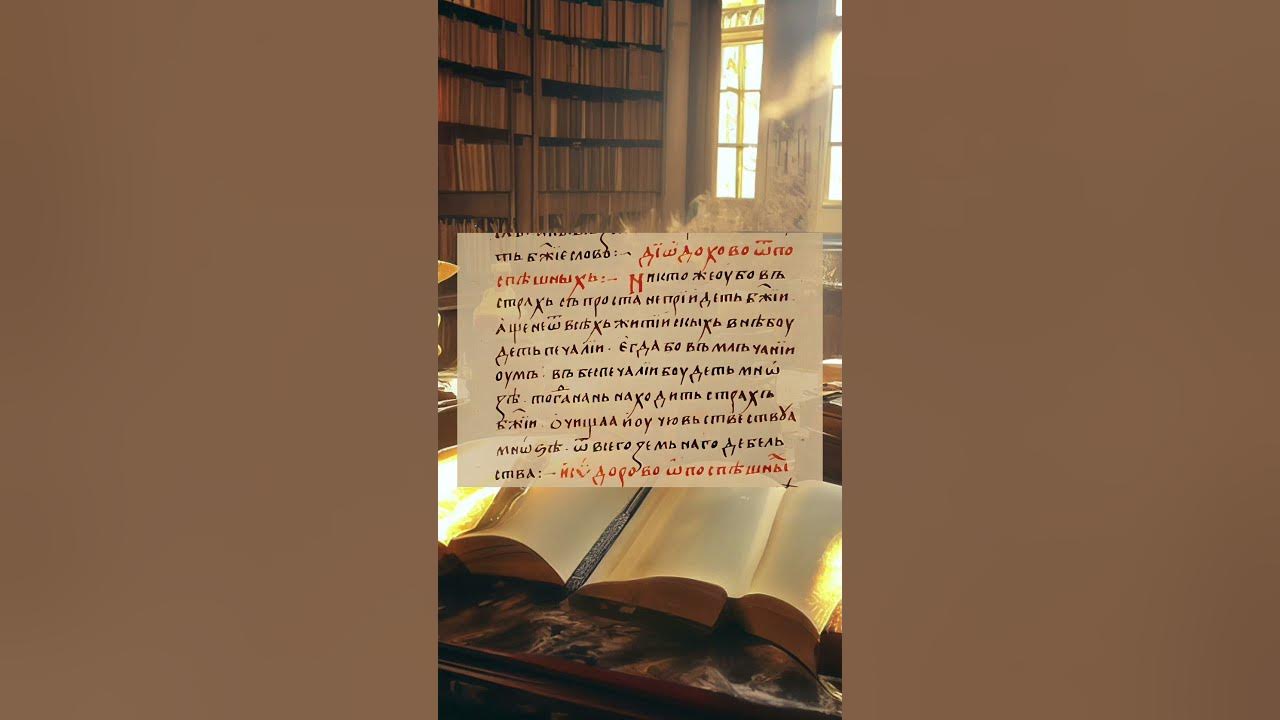 ть бж҃їе слово:~ дїѡ҆дохово ѿпо
спѣшныхъ:~ Никто же оу҆бо въ
страхъ съпроста не прїйдеть бж҃їи.
а҆ще не ѿ всѣхъ житїискыхъ внѣ боу
деть печалїи. е҆гда бо въ млъчанїи
оумъ: въ беспечалїи боудеть мнѡ҆
зѣ. тог҃да нань находить страхъ
бж҃їи. ѻ҆чищаа й оу чювьствества
мнѡ҆ѕѣ. ѿ всего земьнаго дебель
ства:~ и҆сѵ҆дорово ѿпоспѣшны҃